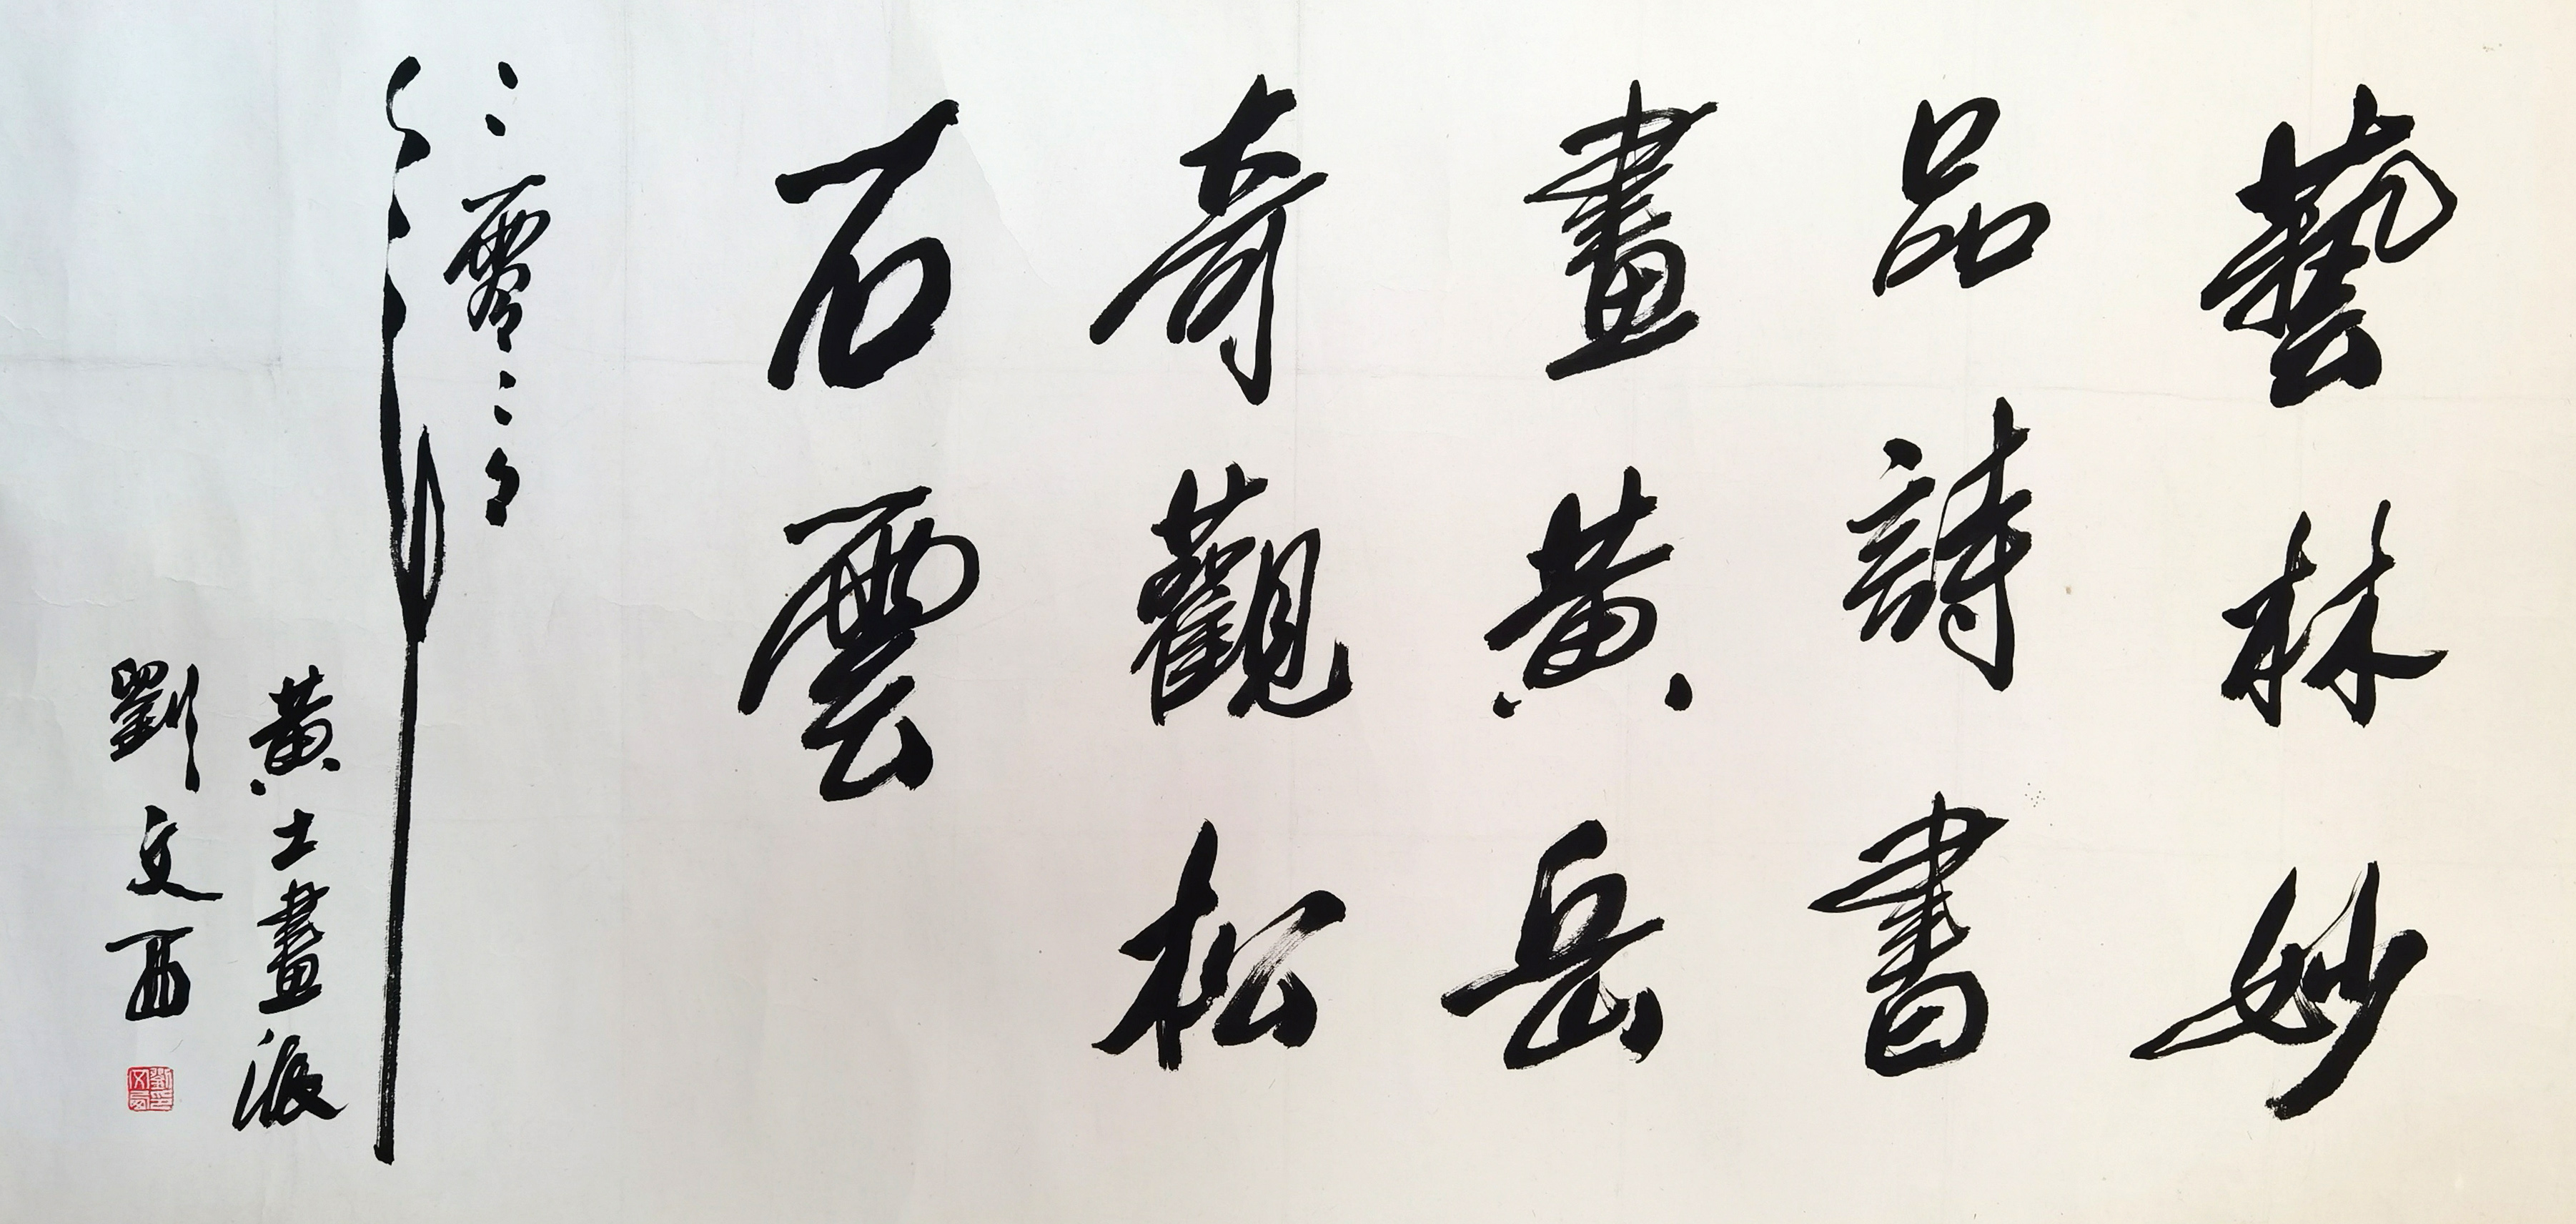 藝林妙
品詩書
畫黃岳
奇觀松
石雲
二零二二
年
黃土畫派
劉文西